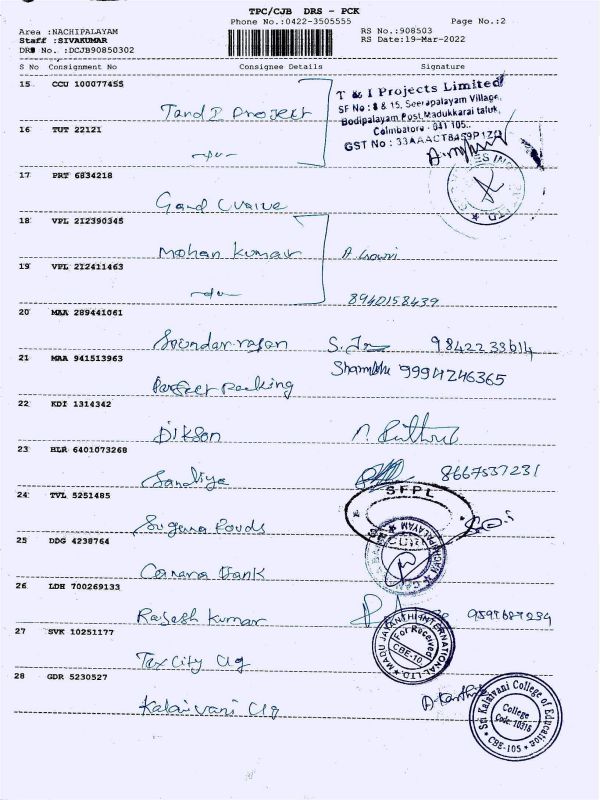 TPC/CJB DRS - PCK
Phone No.:0422-3505555
Page No.:2
Area :NACHIPALAYAM
RS No.:908503
Staff :SIVAKUMAR
RS Date:19-Mar-2022
DRS No. :DCJB90850302
S No Consignment No Consignee Details Signature
15 CCU 100077455
T & I Projects Limited
SF No : 8 & 15, Seerapalayam Village,
Bodipalayam Post, Madukkarai taluk,
Coimbatore - 641 105.
GST No : 33AAACT8459P1ZQ
TandI Project
16 TUT 22121
-do-
17 PRT 6834218
18 VPL 212390345
Mohan kumar
19 VPL 212411463
-do-
8940158439
20 MAA 289441061
Soundar rajan
21 MAA 941513963
9994246365
Perfect packing
22 KDI 1314342
Dikson
23 BLR 6401073268
8667537231
Sandiya
24 TVL 5251485
SFPL
Suguna Foods
25 DDG 4238764
Canara Bank
26 LDH 700269133
Rajesh kumar
MADU JAYANTHI INTERNATIONAL LTD.
For Received
CBE-10
27 SVK 10251177
Tex City Clg
28 GDR 5230527
Kalaivani Clg
Sri Kalaivani College of Education
College
Code: 10316
CBE-105